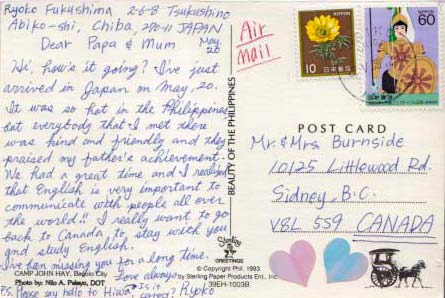 Ryoko Fukushima 2-6-8 Tsukushino
Abiko-shi, Chiba, 270-11 JAPAN
Dear Papa & Mum May, 26
Hi, how's it going? I've just
arrived in Japan on May, 20.
It was so hot in the Philippines
but everybody that I met there
was kind and friendly and they
praised my father's achievement.
We had a great time and I realized
that English is very important to
communicate with people all over
the world!! I really want to go
back to Canada, to stay with you
and study English.
I've been missing you for a long time.
Love always
Ryoko
P.S. Please say hello to Hiwa, Is it correct?
CAMP JOHN HAY, Baguio City
Photo by: Nilo A. Palaya, DOT
BEAUTY OF THE PHILIPPINES
Sterling
GREETINGS
© Copyright Phil. 1993
by Sterling Paper Products Ent., Inc.
39EH-1003B
Air
Mail
NIPPON
10 日本郵便
NIPPON
60
POST CARD
Mr. & Mrs Burnside
10125 Littlewood Rd.
Sidney, B.C.
V8L 5S9 CANADA